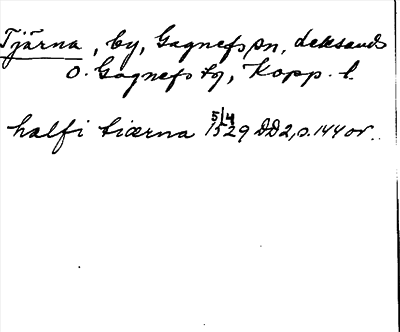 Tjärna, by, Gagnefs sn, Leksands
o. Gagnefs tg, Kopp. l.
halfi tiærna 5/4 1529 DD2, s. 144 or.